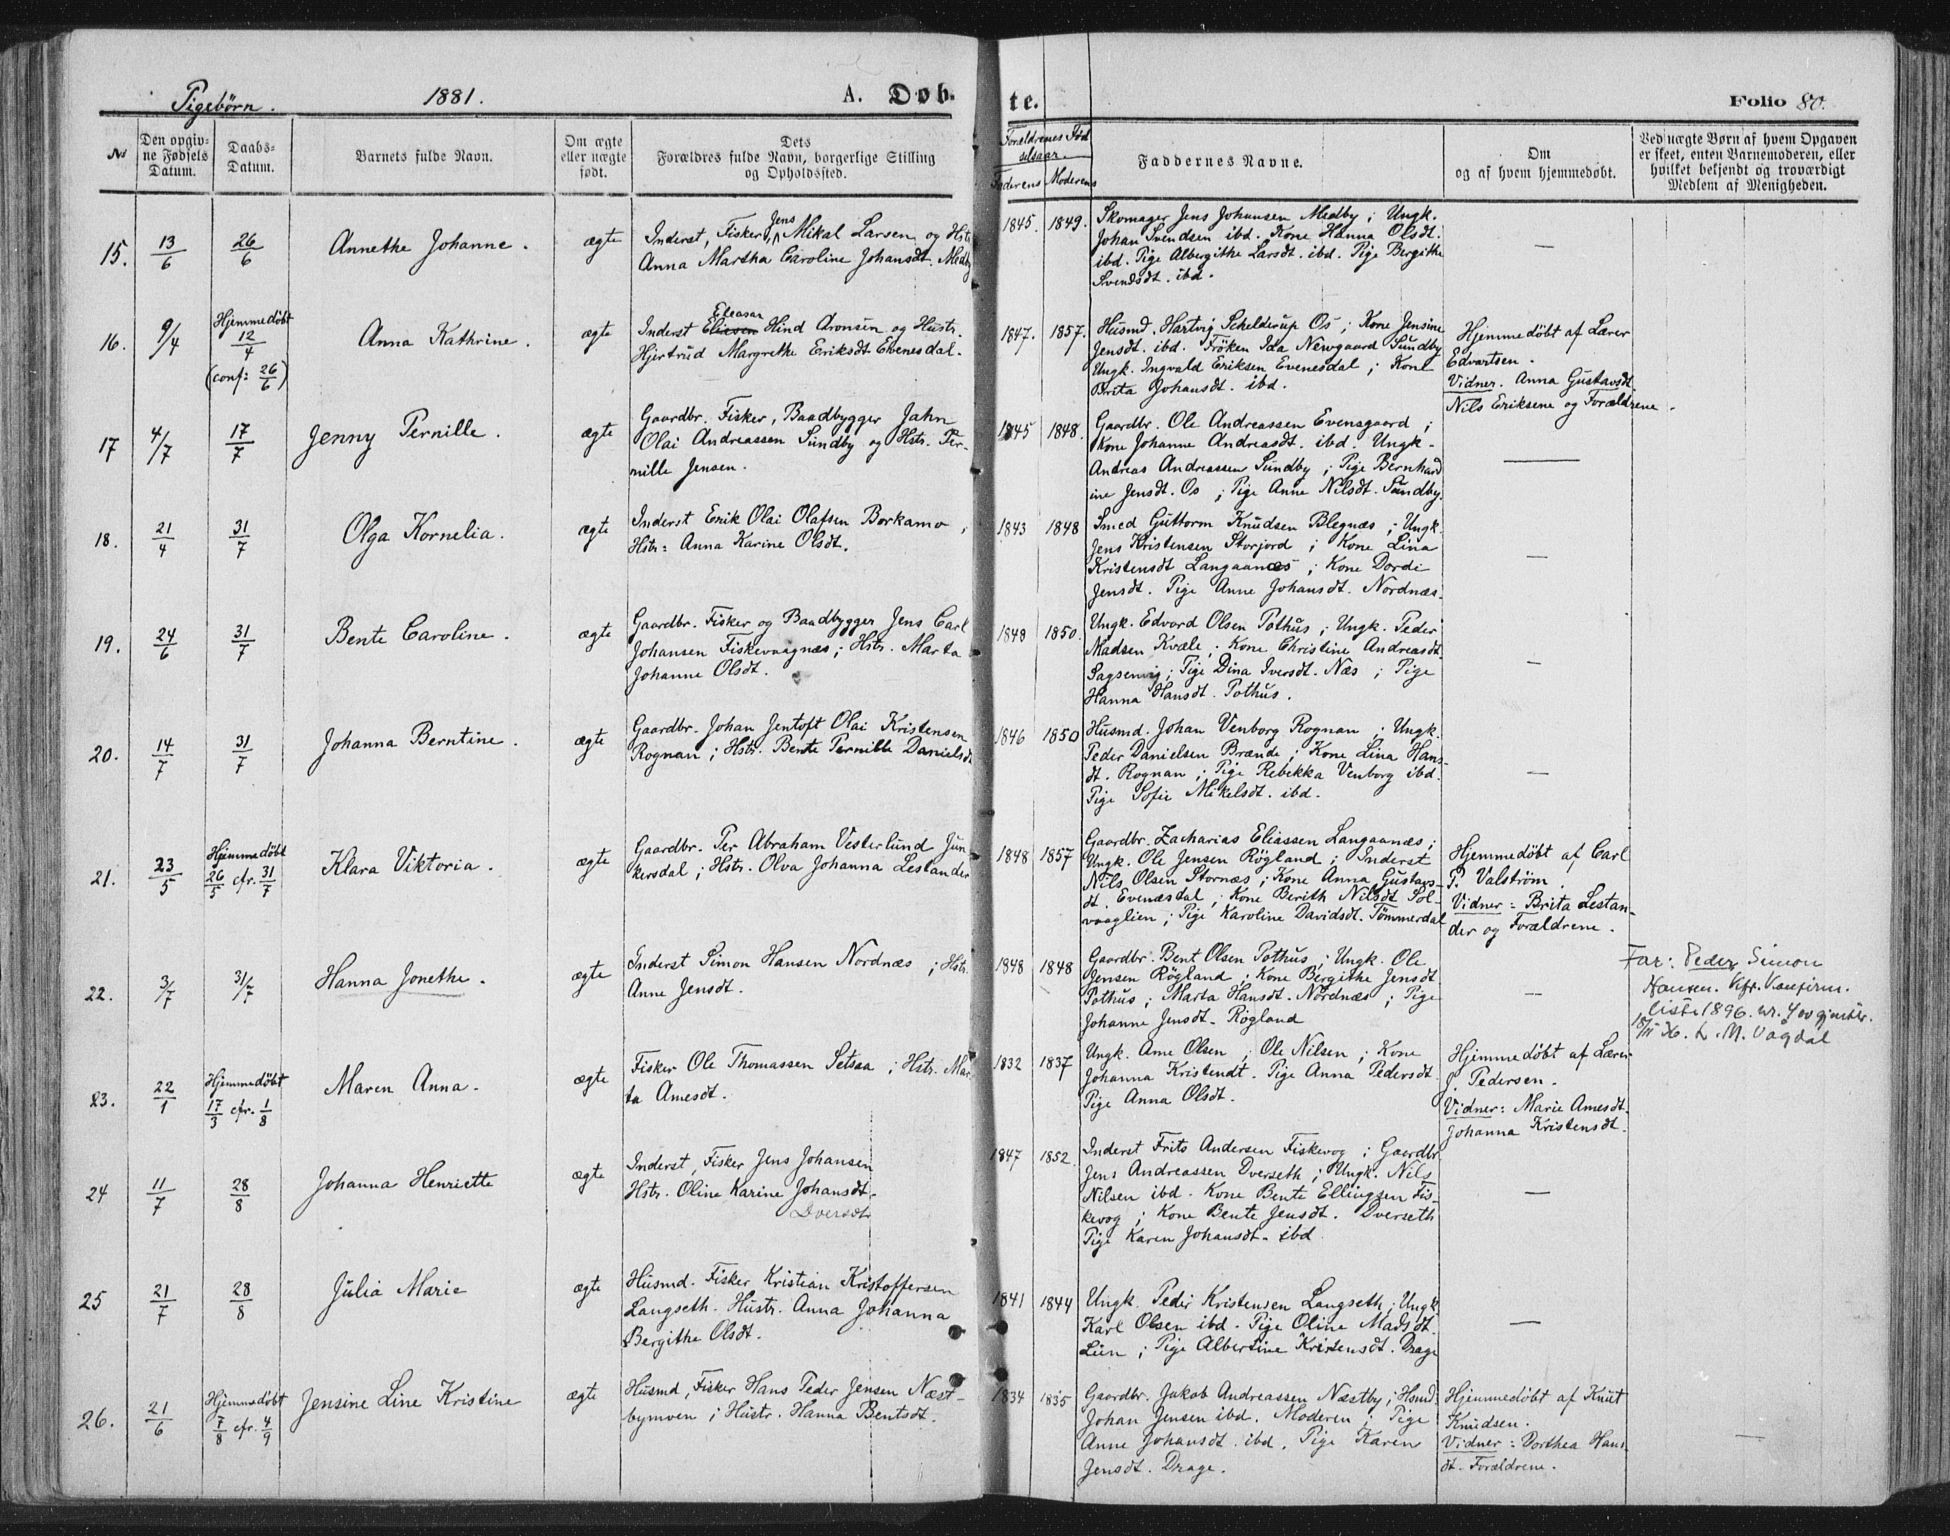 Pigebørn. 1881. A. Døb-
te. Folio 80.
No
Den opgiv-
ne Fødsels
Datum.
Daabs-
Datum.
Barnets fulde Navn.
Om ægte
eller uægte
født.
Dets
Forældres fulde Navn, borgerlige Stilling
og Opholdssted.
Forældrenes Fød
selsaar.
Faderens Moderens
Faddernes Navne.
Om
og af hvem hjemmedøbt.
Ved uægte Børn af hvem Opgaven
er skeet, enten Barnemoderen, eller
hvilket bekjendt og troværdigt
Medlem af Menigheden.
15. 13/6 26/6 Annethe Johanne. ægte
Jens
Inderst, Fisker, Mikal Larsen og Hstr
Anna Martha Caroline Johansdt. Medby
1845. 1849.
Skomager Jens Johansen Medby; Ungk.
Johan Svendsen ibd. Kone Hanna Olsdt.
ibd. Pige Albergithe Larsdt. ibd. Pige Bergithe
Svendsdt. ibd.
—
16. 9/4 Hjemmedøbt
12/4
(conf: 26/6)
Anna Kathrine. ægte
Eleasar
Inderst Hind Aronsen og Hustr.
Hjertrud Margrethe Eriksdt Evenesdal.
1847. 1857.
Husmd. Hartvig Schelderup Os; Kone Jensine
Jensdt. ibd. Frøken Ida Newgaard Sundby
Ungk. Ingvald Eriksen Evenesdal; Kone
Brita Johansdt. ibd.
Hjemmedøbt af Lærer
Edvartsen.
Vidner. Anna Gustavsdt.
Nils Eriksene og Forældrene.
17 4/7 17/7 Jenny Pernille. ægte
Gaardbr. Fisker, Baadbygger Jahn
Olai Andreassen Sundby og Hstr. Per-
nille Jensen.
1845 1848.
Gaardbr. Ole Andreassen Evensgaard;
Kone Johanne Andreasdt. ibd. Ungk.
Andreas Andreassen Sundby; Pige Bernhard
ine Jensdt. Os; Pige Anne Nilsdt. Sundby.
—
18. 21/4 31/7 Olga Kornelia. ægte
Inderst Erik Olai Olafsen Borkamo;
Hstr: Anna Karine Olsdt.
1843 1848
Smed Guttorm Knudsen Blegnæs; Ungk.
Jens Kristensen Storjord; Kone Lina
Kristensdt Langaanæs; Kone Dordi
Jensdt. Pige Anne Johansdt. Nordnæs.
—
19. 24/6 31/7 Bente Caroline. ægte
Gaardbr. Fisker og Baadbygger Jens Carl
Johansen Fiskevaagnæs; Hstr. Marta
Johanne Olsdt.
1848 1850.
Ungk. Edvard Olsen Pothus; Ungk. Peder
Madsen Kvæle; Kone Christine Andreasdt.
Sagsenvig; Pige Dina Iversdt. Næs; Pige
Hanna Hansdt. Pothus.
—
20. 14/7 31/7 Johanna Berntine. ægte
Gaardbr. Johan Jentoft Olai Kristensen
Rognan; Hstr. Bente Pernille Danielsdt
1846 1850
Husmd. Johan Venborg Rognan; Ungk.
Peder Danielsen Brænde; Kone Lina Hans-
dt. Rognan; Pige Rebekka Venborg ibd.
Pige Sofie Mikelsdt. ibd.
—
21. 23/5 Hjemmedøbt
26/5 cfr. 31/7
Klara Viktoria. ægte
Gaardbr. Per Abraham Vesterlund Jun-
kersdal; Hstr. Olva Johanna Lestander
1848 1857
Gaardbr. Zacharias Eliassen Langaanæs;
Ungk. Ole Jensen Røgland; Inderst
Nils Olsen Stornæs; Kone Anna Gustavs-
dt. Evenæsdal; Kone Berith Nilsdt Sol-
vaaglien; Pige Karoline Davidsdt. Tømmerdal
Hjemmedøbt af Carl
P. Valstrøm.
Vidner: Brita Lestan-
der og Forældrene.
22. 3/7 31/7 Hanna Jonethe. ægte
Inderst Simon Hansen Nordnæs; Hstr.
Anne Jensdt.
1848 1848
Gaardbr. Bent Olsen Pothus; Ungk. Ole
Jensen Røgland; Kone Bergithe Jensdt
Pothus; Marta Hansdt. Nordnæs; Pige
Johanne Jensdt. Røgland
—
Far: Peder Simon
Hansen. Kfr. Konfirm.
liste 1896. nr. 4
L. M. Vågdal
23. 22/1 Hjemmedøbt
17/3 cfr. 1/8
Maren Anna. ægte
Fisker Ole Thomassen Setsaa; Hstr. Mar
ta Arnesdt.
1832 1837
Ungk. Arne Olsen; Ole Nilsen; Kone
Johanna Kristendt. Pige Anna Pedersdt
Pige Anna Olsdt.
Hjemmedøbt af Lærer
J. Pedersen.
Vidner: Marie Arnesdt.
Johanna Kristensdt.
24 11/7 28/8 Johanna Henriette ægte
Inderst, Fisker Jens Johansen
Hstr. Oline Karine Johansdt.
1847 1852.
Inderst Frits Andersen Fiskevog; Gaardbr.
Jens Andreassen Dverseth; Ungk. Nils
Nilsen ibd. Kone Bente Ellingsen Fis-
kevog; Kone Bente Jensdt. Dverseth
Pige Karen Johansdt. ibd
—
25 21/7 28/8 Julia Marie ægte
Husmd. Fisker Kristian Kristoffersen
Langseth. Hustr. Anna Johanna
Bergithe Olsdt.
1841 1844
Ungk. Peder Kristensen Langseth; Ungk.
Karl Olsen ibd. Pige Oline Madsdt.
Lien; Pige Albertine Kristensdt. Drage
—
26. 21/6 Hjemmedøbt
7/8 cfr. 4/9
Jensine Line Kristine ægte
Husmd, Fisker Hans Peder Jensen Næst-
bymoen; Hustr. Hanna Bentsdt.
1834 1835
Gaardbr. Jakob Andreassen Næstby; Husmd.
Johan Jensen ibd. Moderen; Pige
Anne Johansdt. ibd. Pige Karen
Jensdt. Drage.
Hjemmedøbt af Knut
Knudsen.
Vidner: Dorthea Hans
dt. Forældrene.
—